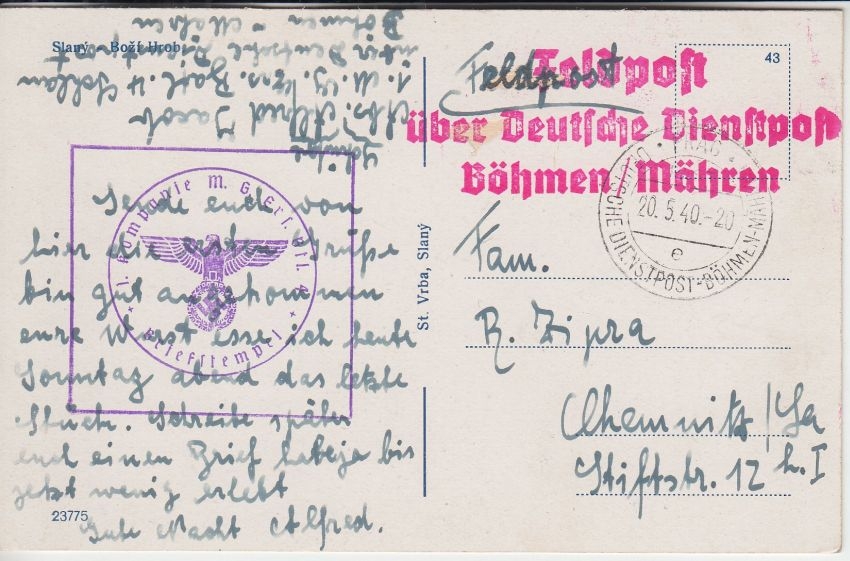 Slaný - Boží Hrob
Schütze
Abs: Alfred Jacob
1. M. G. Ers. Batl. 4 Schlan
über Deutsche Dienstpost
Böhmen - Mähren
1. Kompanie M. G. Ers. Btl. 4
Briefstempel
Sende euch von
hier die ersten Grüße
bin gut angekommen
eure Wurst esse ich heute
Sonntag abend das letzte
Stück. Schreibe später
euch einen Brief habe ja bis
jetzt wenig erlebt
Gute Nacht Alfred.
23775
St. Vrba, Slaný
43
Feldpost
Feldpost
über Deutsche Dienstpost
Böhmen/Mähren
PRAG
20.5.40.-20
e
DEUTSCHE DIENSTPOST-BÖHMEN-MÄHREN
Fam.
R. Zipra
Chemnitz/Sa
Stiftstr. 12 h. I